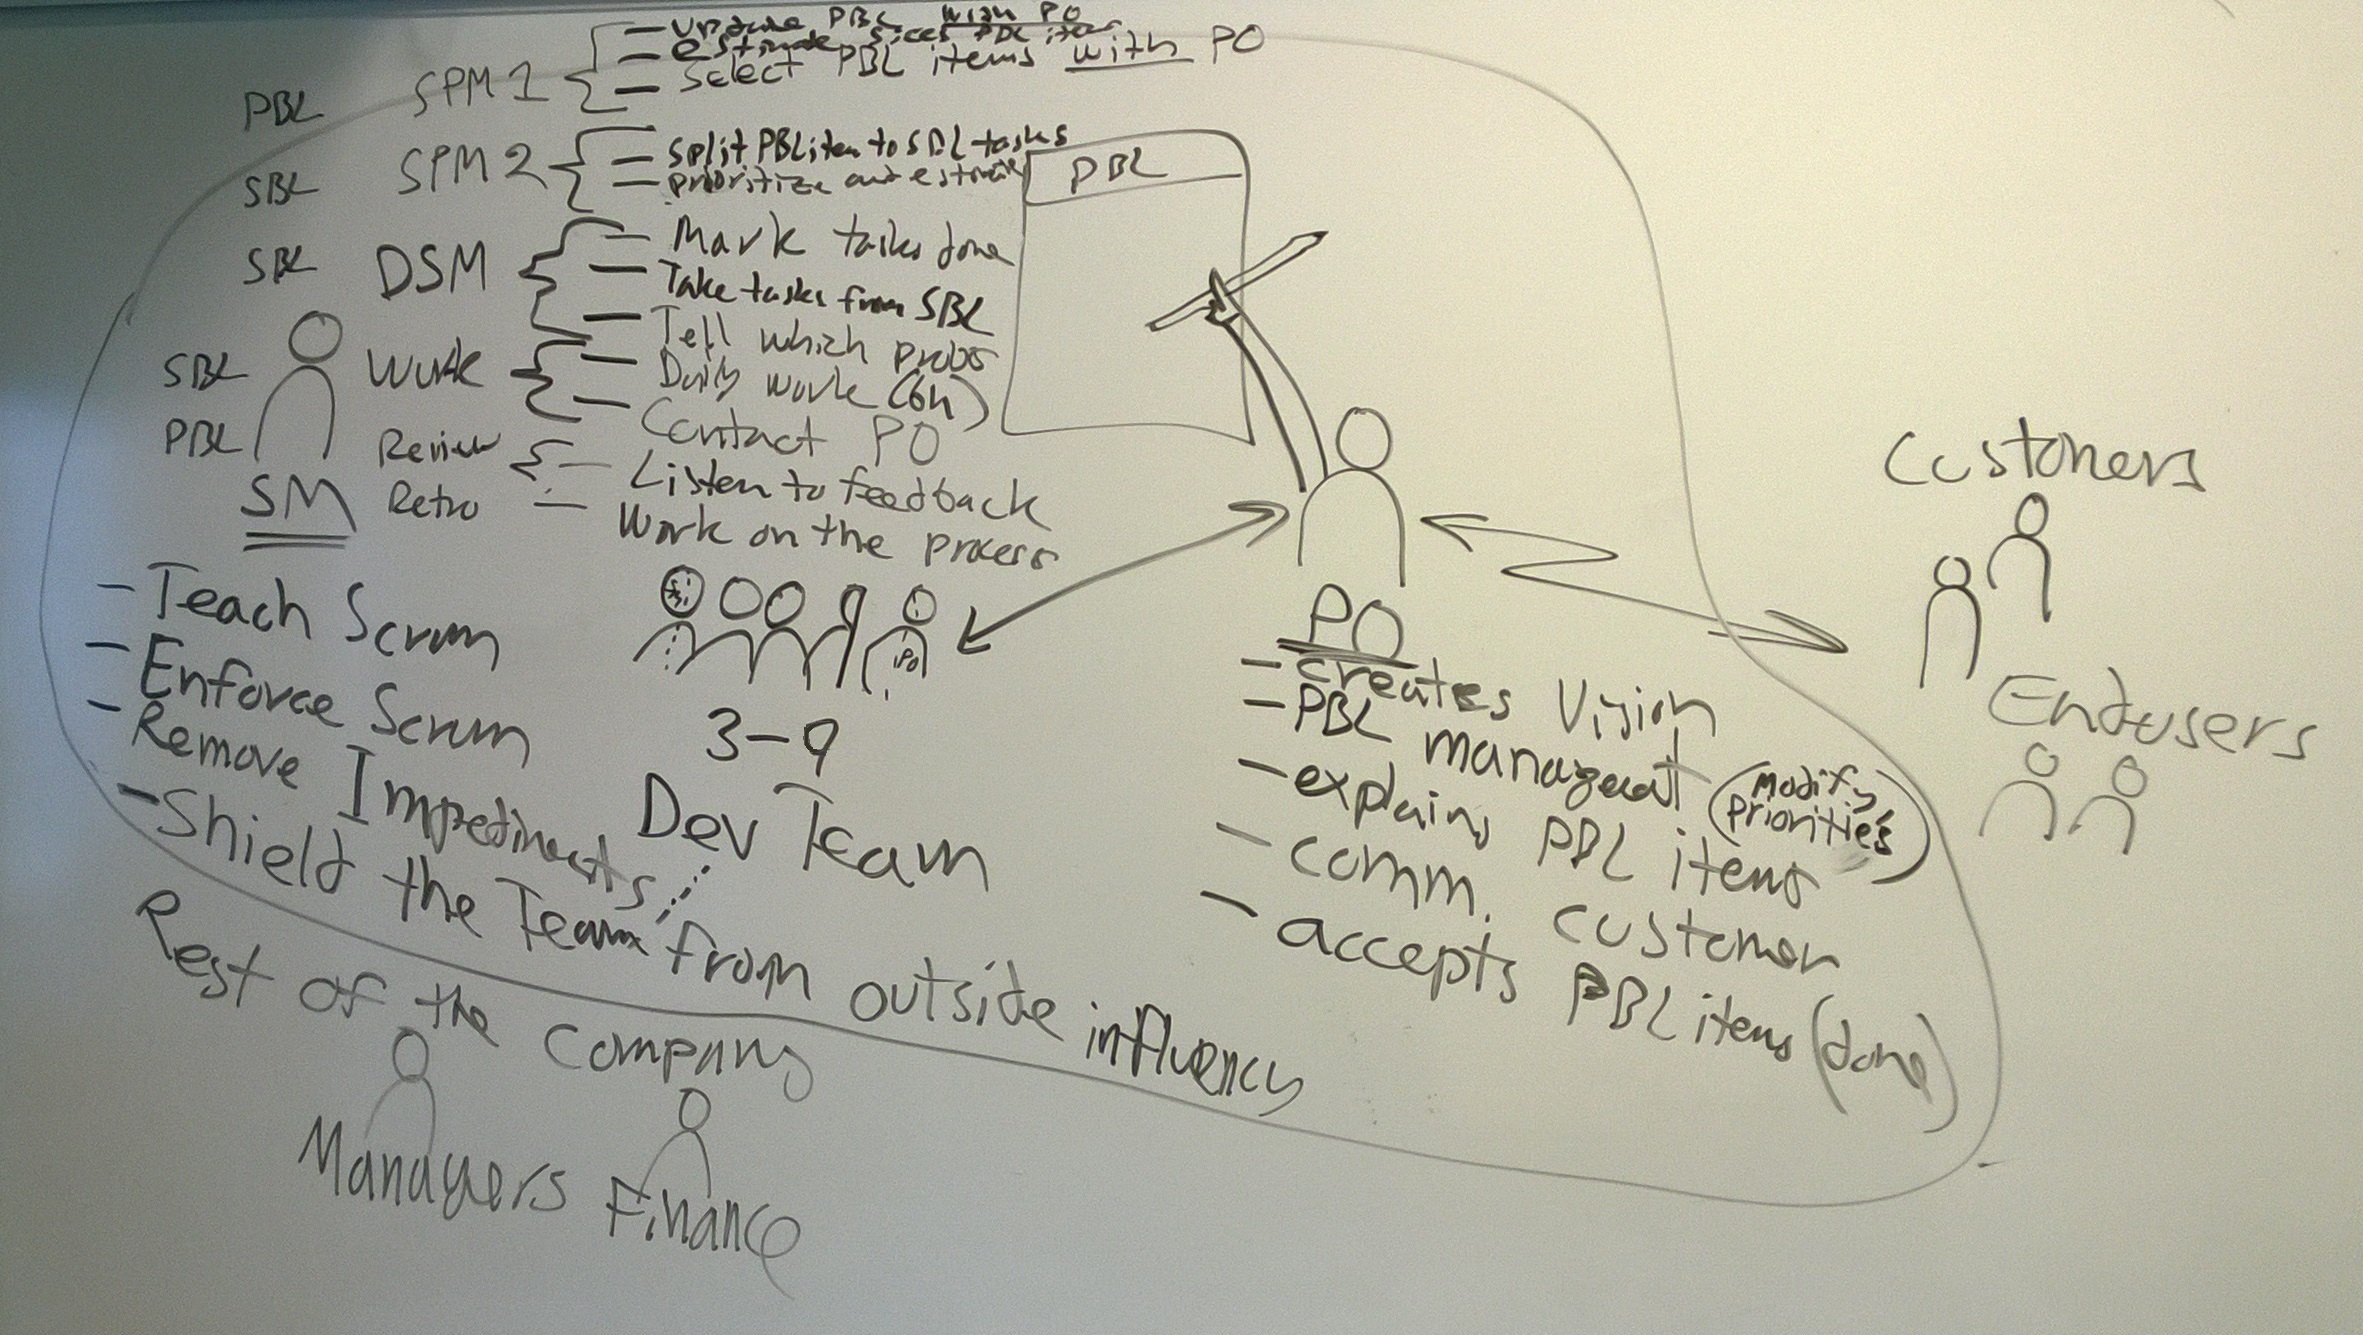 Update PBL with PO
estimate sices PBL items
PBL SPM1 Select PBL items with PO
SBL SPM2 Split PBL item to SBL tasks
prioritize and estimate
PBL
Mark tasks done
SBL DSM Take tasks from SBL
Tell which probs
SBL Work Daily work (6h)
Contact PO
PBL Review Listen to feedback
SM Retro Work on the process
- Teach Scrum
- Enforce Scrum
- Remove Impediments
- Shield the Team from outside influency
PO
3-9
Dev Team
PO
- creates Vision
- PBL managent (modify priorities)
- explains PBL items
- comm. customer
- accepts PBL items (done)
Customers
Endusers
Rest of the Company
Managers Finance